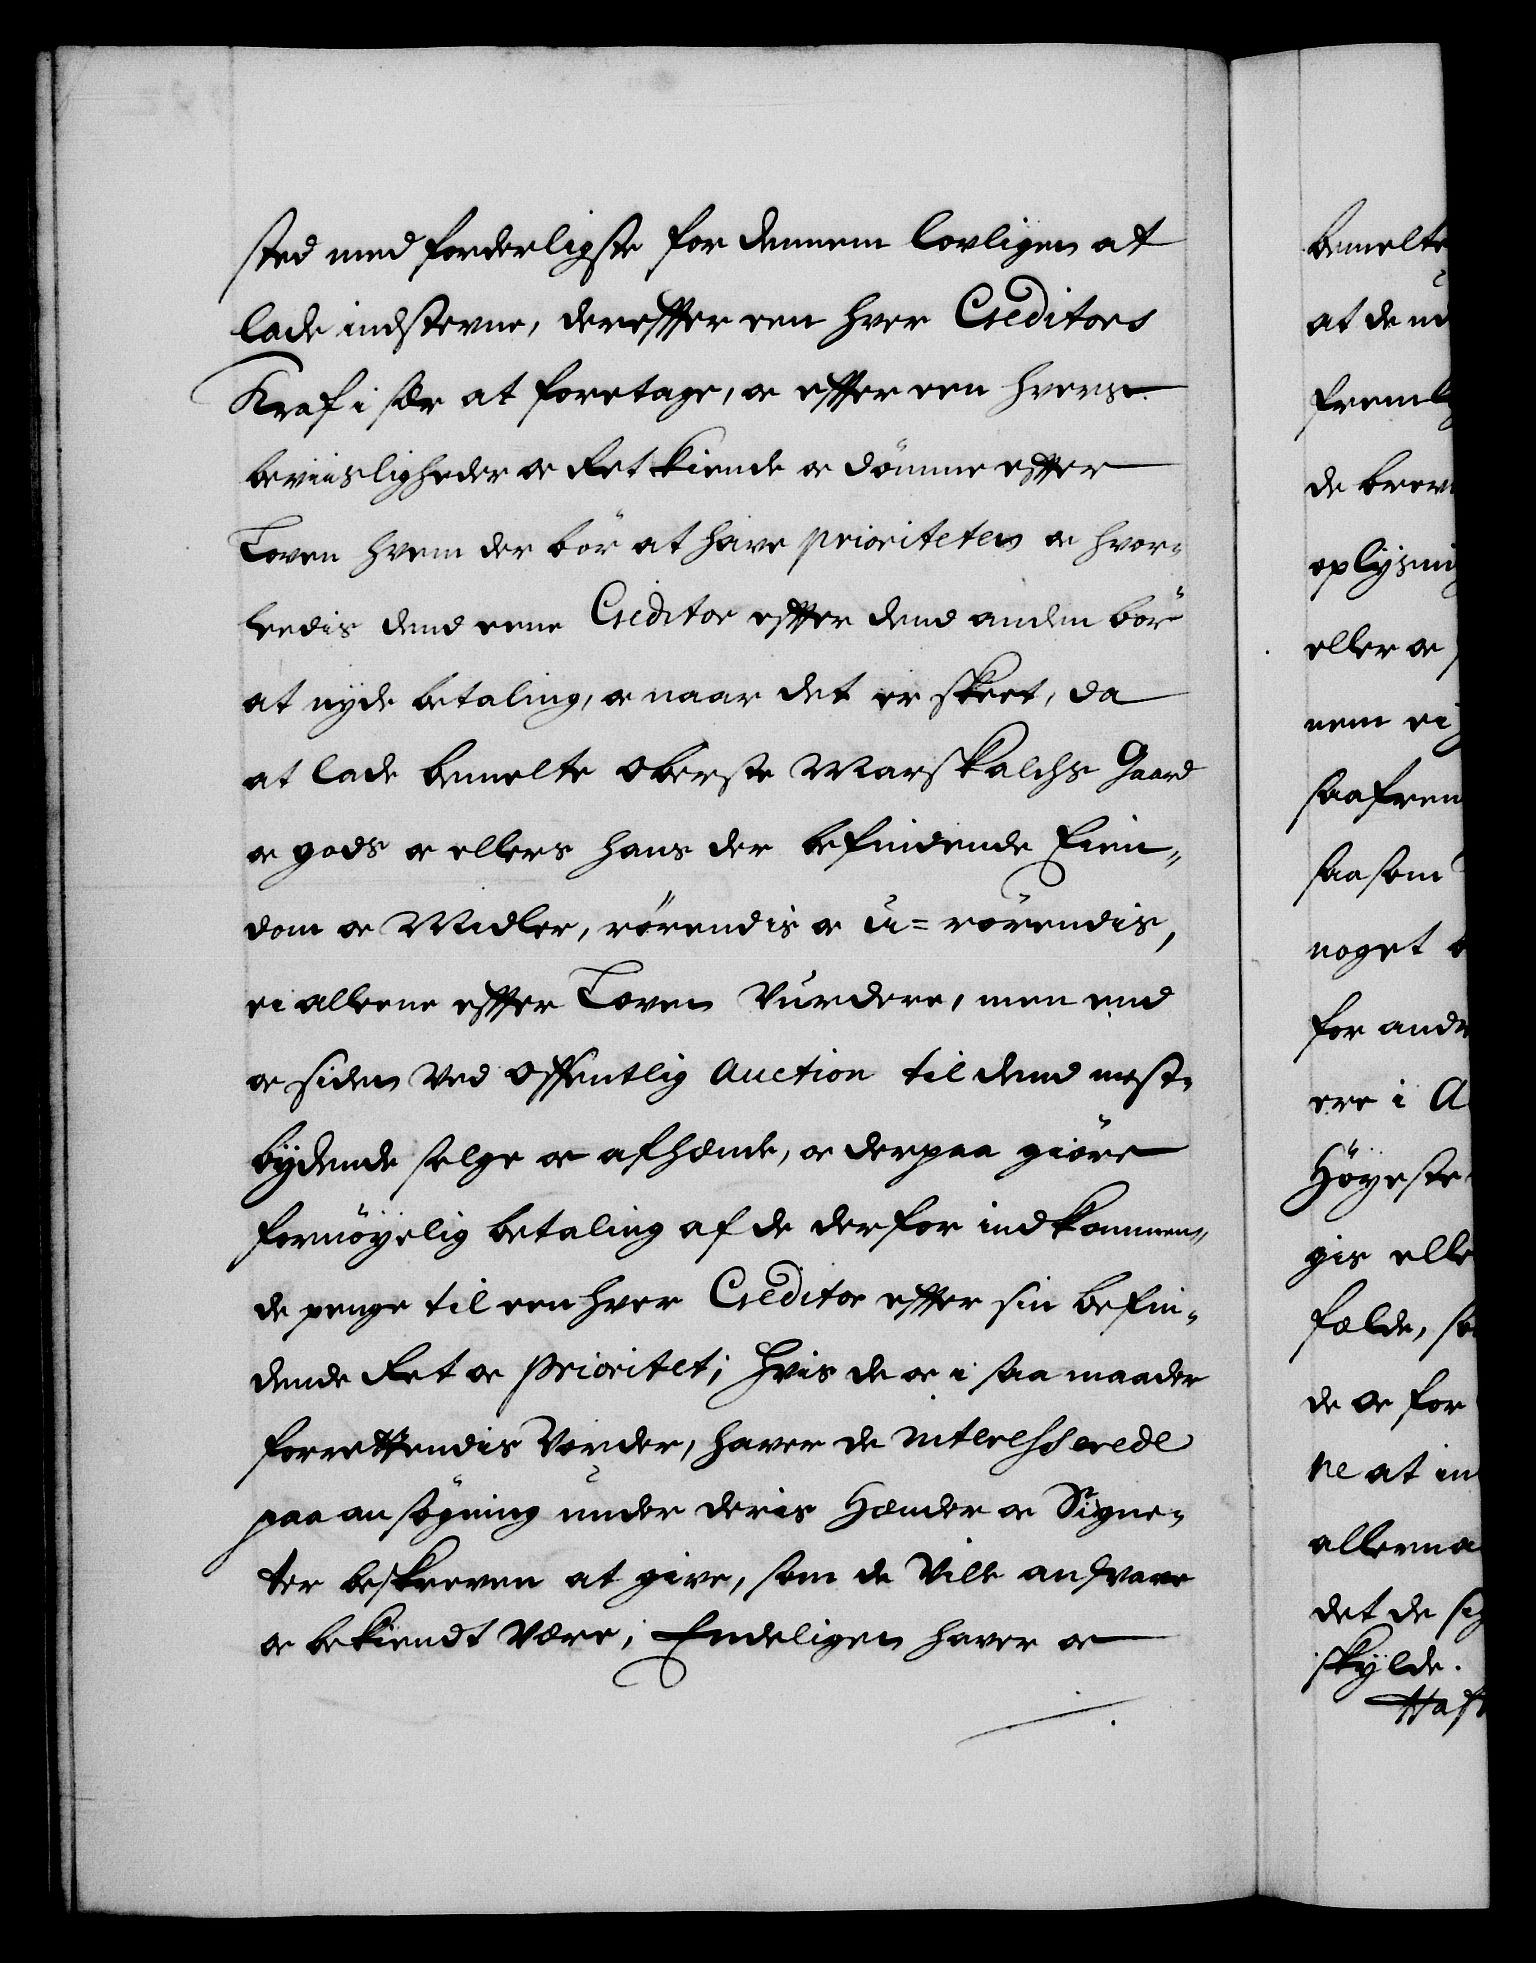 sted med forderligste for dennem lovligen at
lade indstevne, dereffter een hver Creditors
Kraf i sær at foretage, oc effter een hvers
beviisligheder oc Ret kiende oc dömme effter
Loven hvem der bör at have prioriteten oc hvor-
ledis dend eene Creditor effter dend anden bör
at nyde betaling, oc naar det er skeet, da
at lade bemelte Oberste Marskalchs Gaard
oc gods oc ellers hans der befindende Eien-
dom oc Midler, rörendis oc u=rörendis,
ei alleene effter Loven Vurdere, men end
oc siden Ved Offentlig Auction til dend mest-
bydende selge oc afhænde, oc derpaa giöre
fornöyelig betaling af de derfor indkommen-
de penge til een hver Creditor effter sin befin-
dende Ret oc Prioritet; Hvis de oc i saa maader
forrettendis Vorder, haver de interesserede
paa ansögning under deris Hænder oc Signe-
ter beskreven at give, som de Ville ansvare
oc bekiendt Være; Endeligen haver oc
bemelte
at de
freml
de brev
oplysnin
eller oc
nem ei
saafrem
saasom
noget
for andr
ere i A
Höyeste
gis elle
fælde,
de oc for
re at in
allerna
det de
skylde.